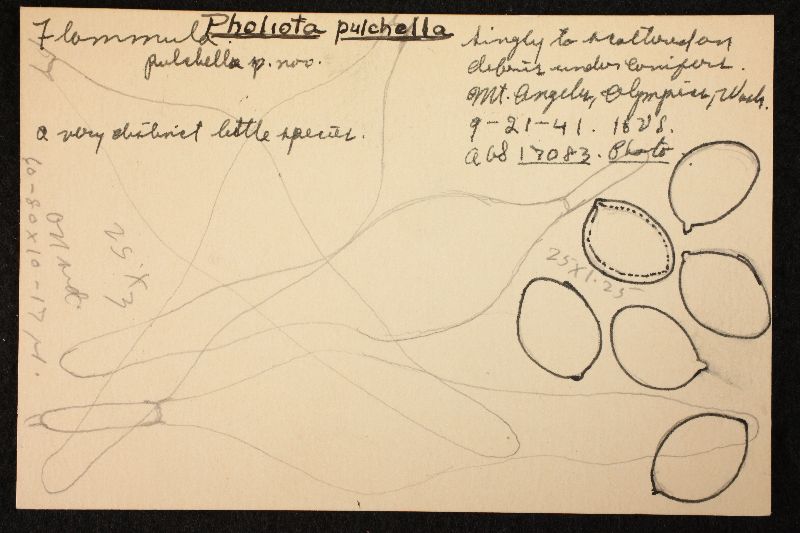 Flammula
Pholiota pulchella
pulchella sp. nov.
a very distinct little species.
singly to scattered on
debris under conifers.
Mt. Angeles, Olympics, Wash.
9-21-41.
AHS 17083. Photo
25 X 3
60-80 X 10-17 µ.
25 X 1.25